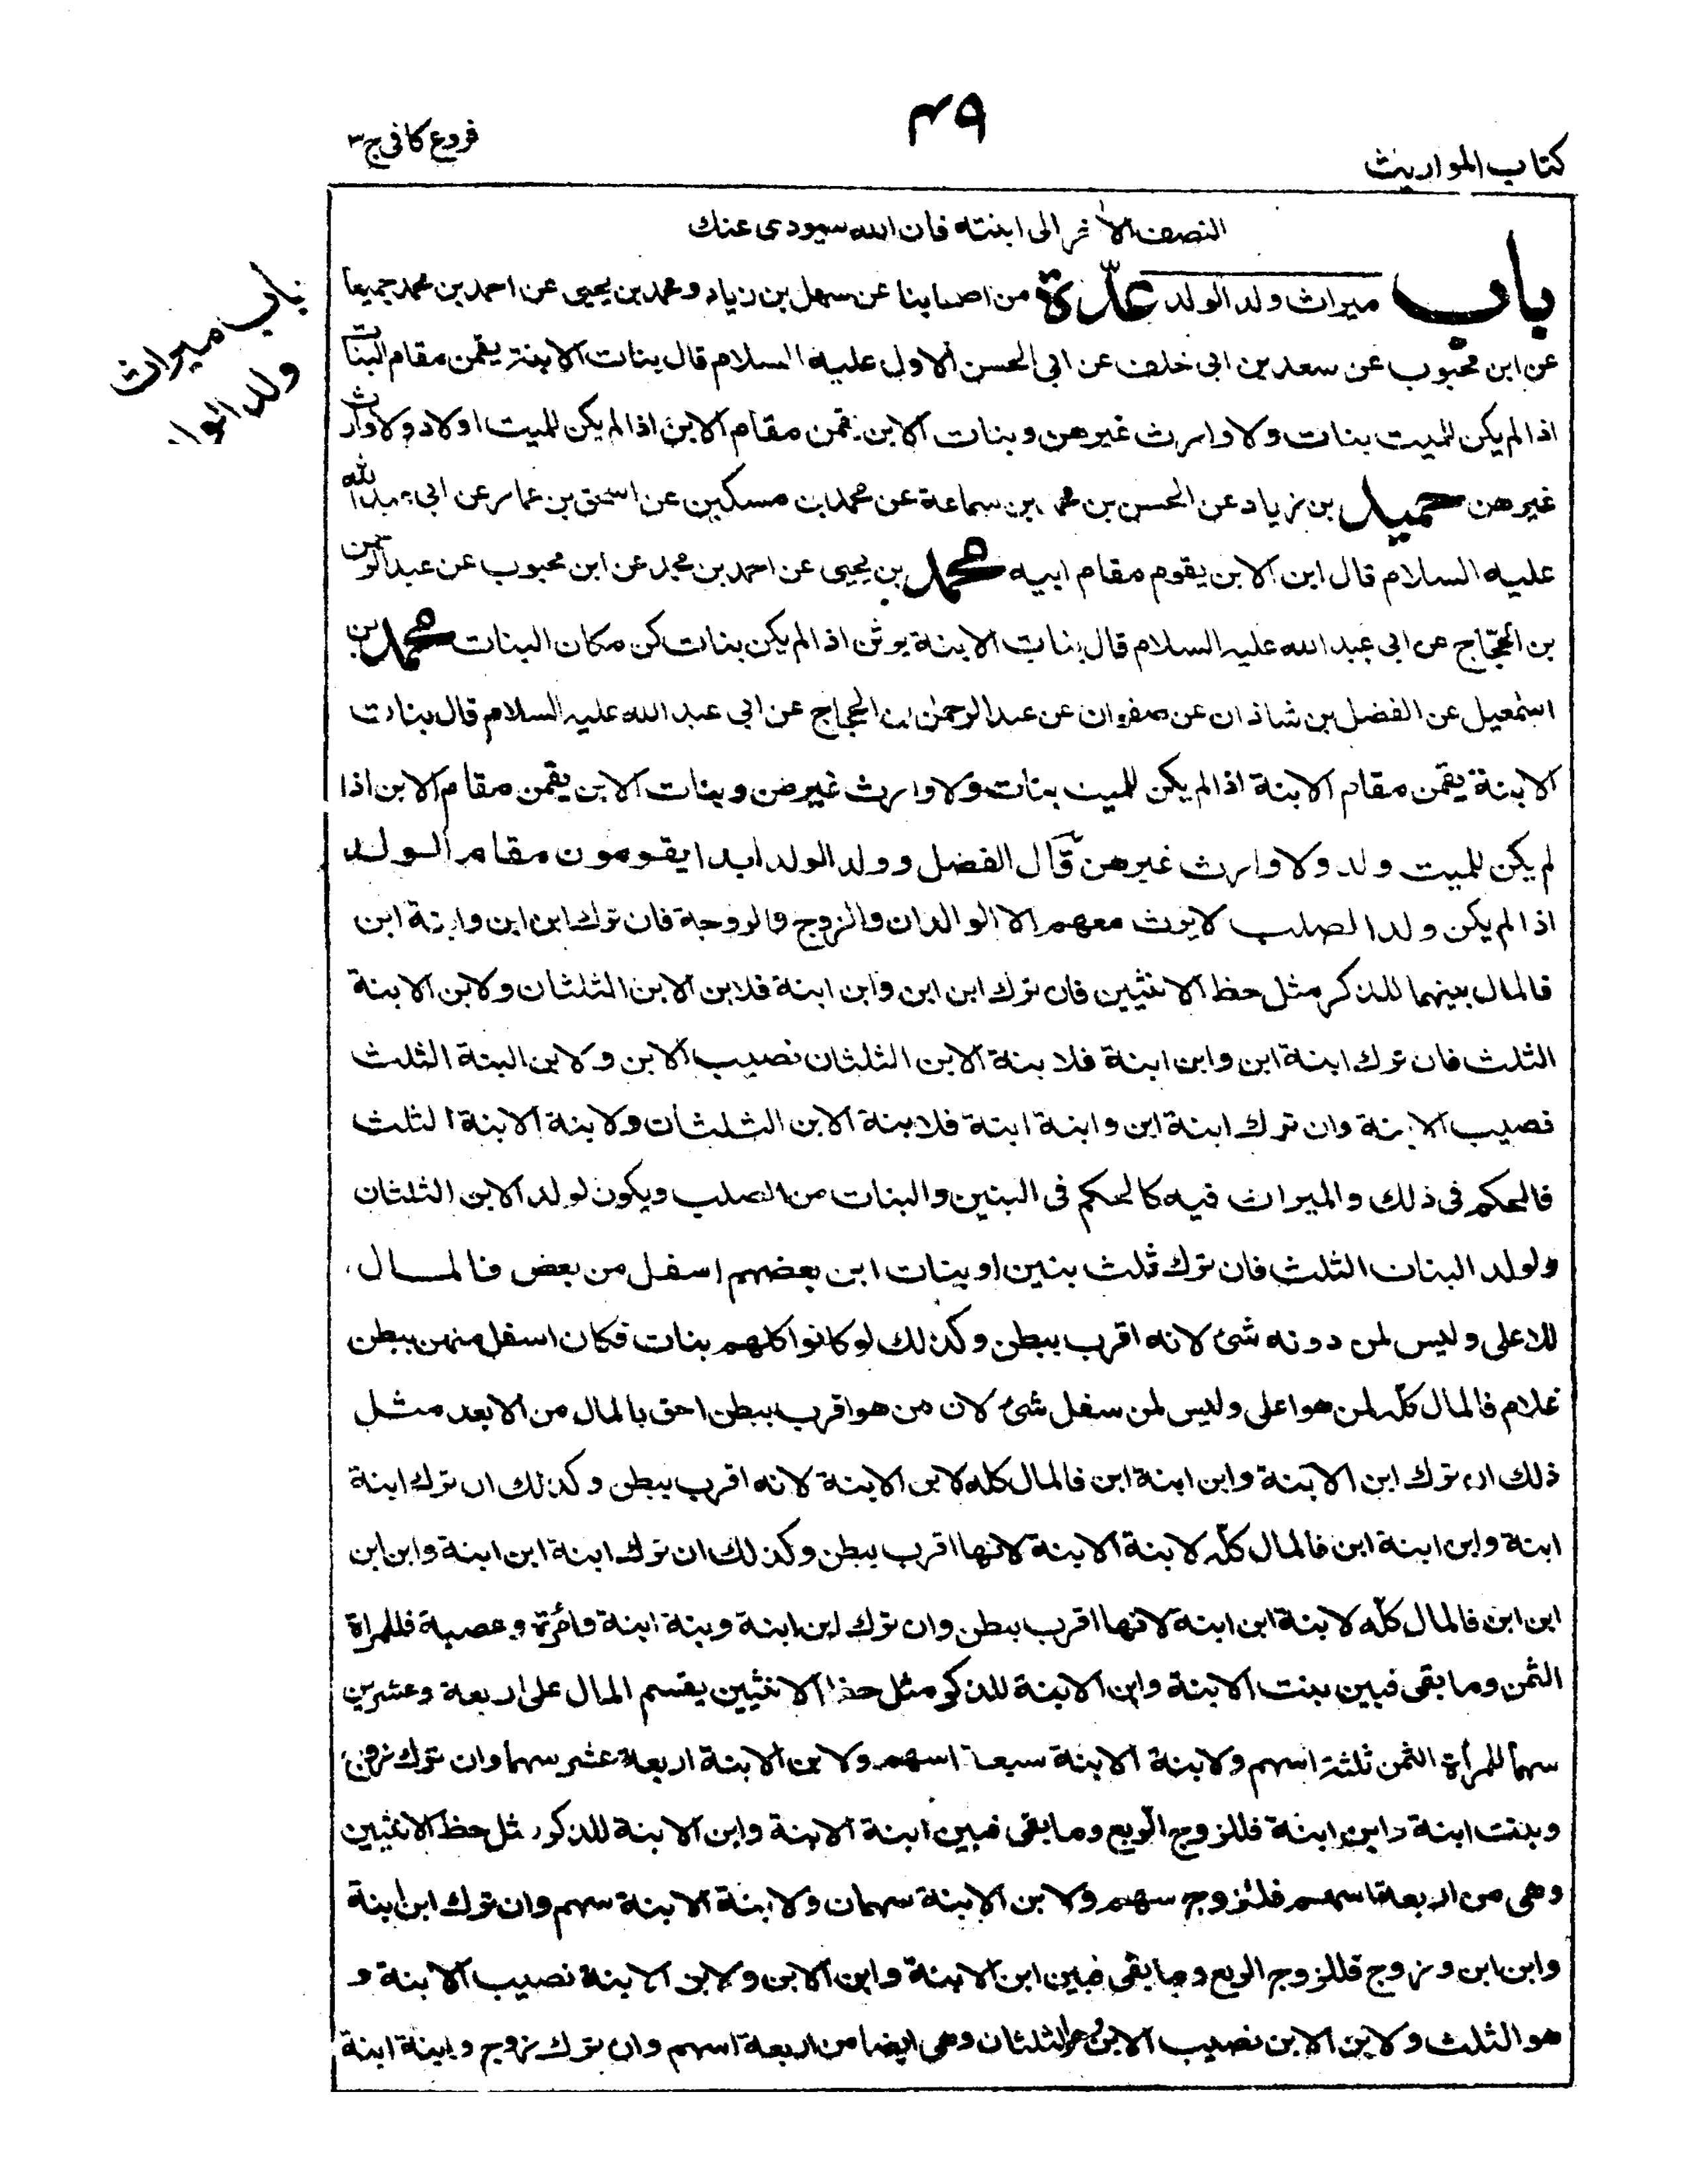 ٤٩
كتاب المواريث
فروع كافى ج ٣
النصف الاخر الى ابنته فان الله سيودى عنك
باب ميراث ولد الولد عدّة من اصحابنا عن سهل بن زياد ومحمد بن يحيى عن احمد بن محمد جميعا
باب ميراث
ولد الولد
عن ابن محبوب عن سعد بن ابى خلف عن ابى الحسن الاول عليه السلام قال بنات الابنة يقمن مقام البنات
اذا لم يكن للميت بنات ولا وارث غيرهن وبنات الابن يقمن مقام الابن اذا لم يكن للميت اولاد ولا وارث
غيرهن حميد بن زياد عن الحسن بن محمد بن سماعة عن محمد بن مسكين عن اسحق بن عمار عن ابى عبد الله
عليه السلام قال ابن الابن يقوم مقام ابيه محمد بن يحيى عن احمد بن محمد عن ابن محبوب عن عبد الرحمن
بن الحجّاج عن ابى عبد الله عليه السلام قال بنات الابنة يرثن اذا لم يكن بنات كن مكان البنات محمد بن
اسمعيل عن الفضل بن شاذان عن صفوان عن عبد الرحمن بن الحجاج عن ابى عبد الله عليه السلام قال بنات
الابنة يقمن مقام الابنة اذا لم يكن للميت بنات ولا وارث غيرهن وبنات الابن يقمن مقام الابن اذا
لم يكن للميت ولد ولا وارث غيرهن قال الفضل وولد الولد ابدا يقومون مقام الولد
اذا لم يكن ولد الصلب لا يرث معهم الا الوالدان والزوج والزوجة فان ترك ابن ابن وابنة ابن
فالمال بينهما للذكر مثل حظ الانثيين فان ترك ابن ابن وابن ابنة فلابن الابن الثلثان ولابن الابنة
الثلث فان ترك ابنة ابن وابن ابنة فلابنة الابن الثلثان نصيب الابن ولابن البنة الثلث
نصيب الابنة وان ترك ابنة ابن وابنة ابنة فلابنة الابن الثلثان ولابنة الابنة الثلث
فالحكم فى ذلك والميراث فيه كالحكم فى البنين والبنات من الصلب ويكون لولد الابن الثلثان
ولولد البنات الثلث فان ترك ثلث بنين او بنات ابن بعضهم اسفل من بعض فالمال
للاعلى وليس لمن دونه شئ لانه اقرب ببطن وكذلك لو كانوا كلهم بنات فكان اسفل منهن ببطن
غلام فالمال كلّه لمن هو اعلى وليس لمن سفل شئ لان من هو اقرب ببطن احق بالمال من الابعد مثل
ذلك ان ترك ابن الابنة وابن ابنة ابن فالمال كله لابن الابنة لانه اقرب ببطن وكذلك ان ترك ابنة
ابنة وابن ابنة ابن فالمال كلّه لابنة الابنة لانها اقرب ببطن وكذلك ان ترك ابنة ابن ابنة وابن ابن
ابن ابن فالمال كلّه لابنة ابن ابنة لانها اقرب ببطن وان ترك ابن ابنة وبنة ابنة وامرئة وعصبة فللمراة
الثمن وما بقى فبين بنت الابنة وابن الابنة للذكر مثل حظ الانثيين يقسم المال على اربعة وعشرين
سهما للمرأة الثمن ثلثة اسهم ولابنة الابنة سبعة اسهم ولابن الابنة اربعة عشر سهما وان ترك زوج
وبنت ابنة وابن ابنة فللزوج الربع وما بقى فبين ابنة الابنة وابن الابنة للذكر مثل حظ الانثيين
وهى من اربعة اسهم فللزوج سهم ولابن الابنة سهمان ولابنة الابنة سهم وان ترك ابن ابنة
وابن ابن وزوج فللزوج الربع وما بقى فبين ابن الابنة وابن الابن ولابن الابنة نصيب الابنة و
هو الثلث ولابن الابن نصيب الابن وهو الثلثان وهى ايضا من اربعة اسهم وان ترك زوج وابنة ابنة